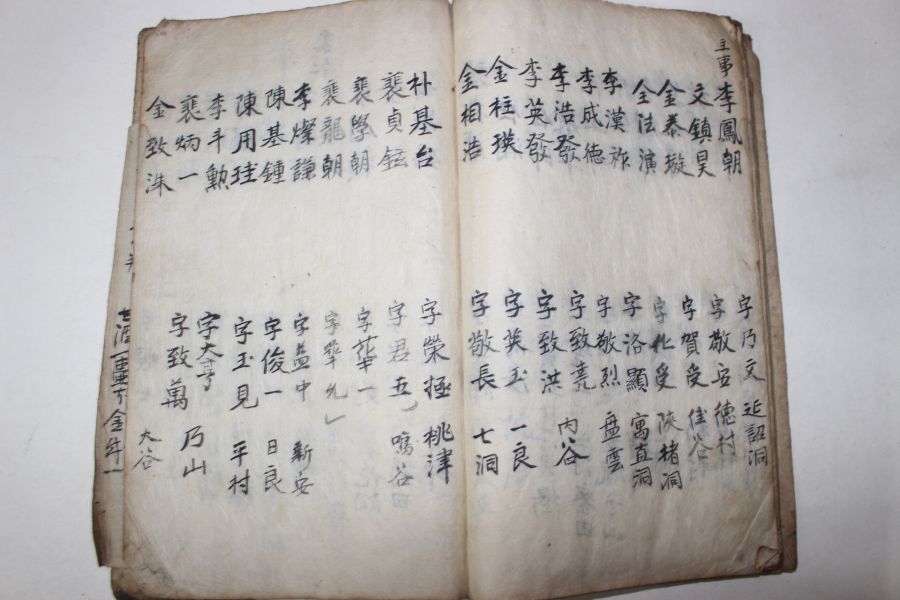 主事 李鳳朝 字乃文 近詔洞
文鎮昊 字敬安 德村
金泰璇 字賀受 佳谷
全法演 字化受 陜楮洞
李漢祚 字洛顯 寓直洞
李成德 字敬烈 盘雲
李浩發 字致堯 内谷
李英發 字致洪
金柱瑛 字英玉 一良
金相浩 字敬長 七洞
朴基台 字榮極 桃津
裵貞鉉 字君五 鳴谷
裵學朝 字華一
裵龍朝 字華允
李燦謙 字益中 新安
陳基鍾 字俊一 日良
陳用珪 字玉見 平村
李斗勳 字大亨
裵炳一 字致萬 乃山
金致洙 大谷